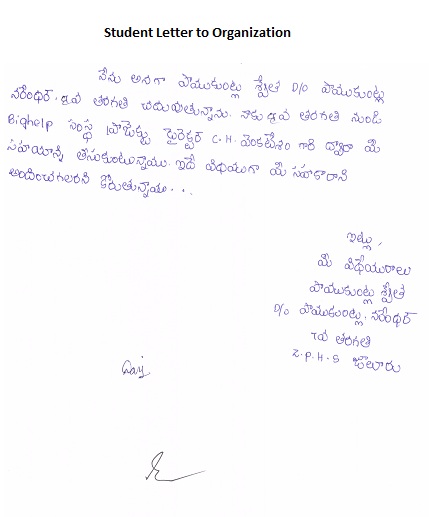 Student Letter to Organization
నేను అనగా పాముకుంట్ల శ్వేత D/o పాముకుంట్ల
నరేంధర్. 8వ తరగతి చదువుతున్నాను. నాకు 8వ తరగతి నుండి
Bighelp సంస్థ ప్రాజెక్టు డైరెక్టర్ C.H. వెంకటేశం గారి ద్వారా మీ
సహాయాన్ని తీసుకుంటున్నాము. ఇదే విధముగా మీ సహకారాన్ని
అందించగలరని కోరుతున్నాము...
ఇట్లు,
మీ విధేయురాలు
పాముకుంట్ల శ్వేత
D/o పాముకుంట్ల. నరేంధర్
తరగతి
Z.P.H.S